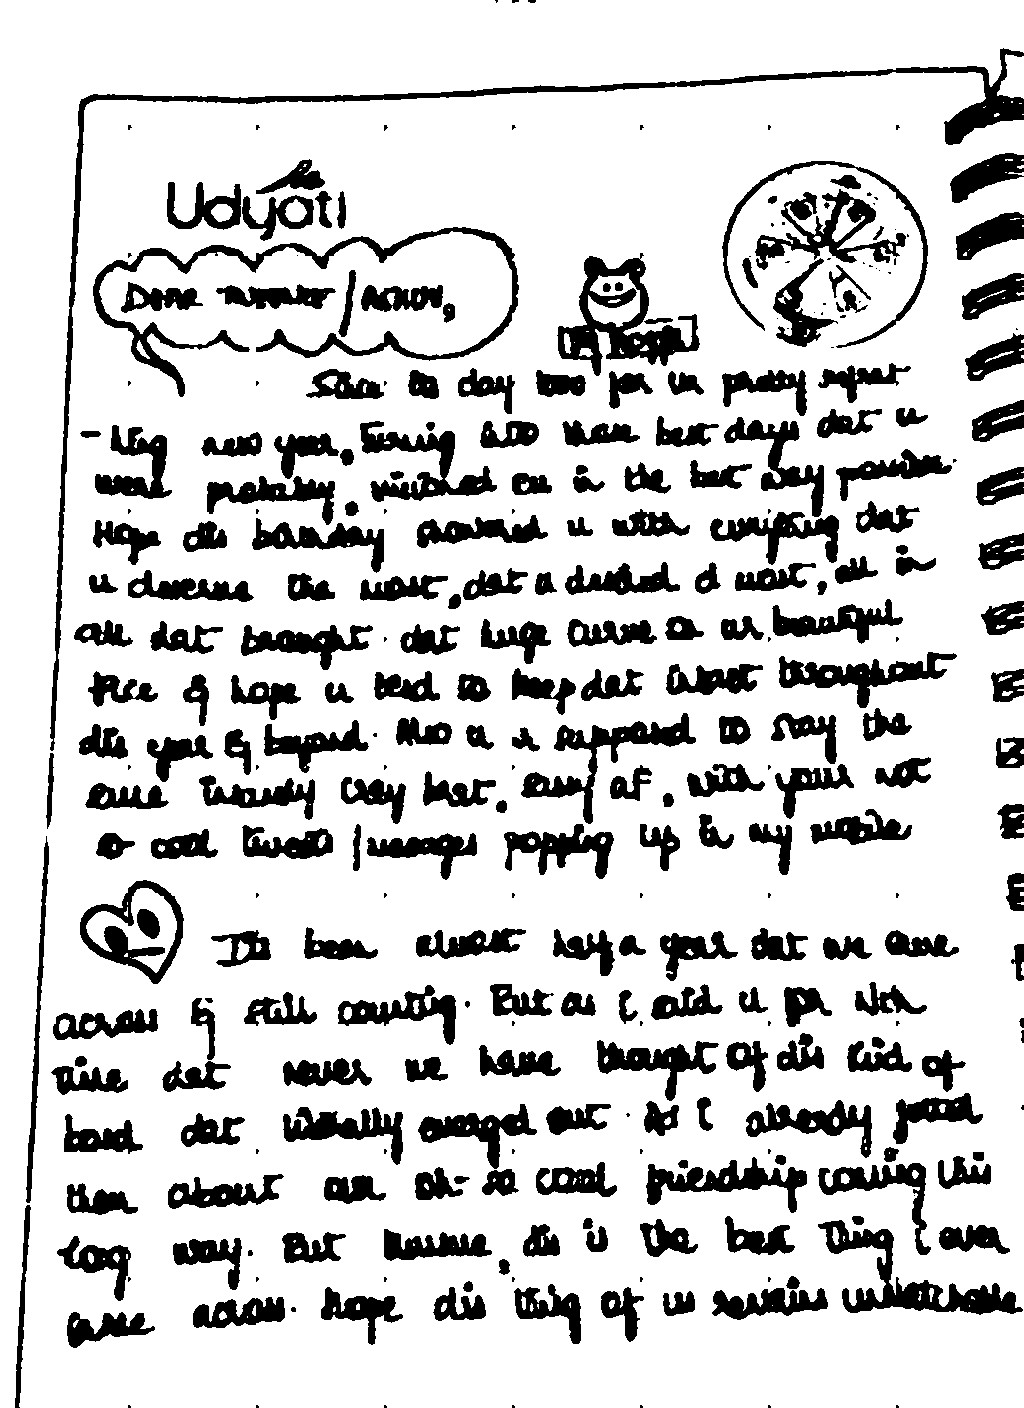 Udyati
DEAR /
Since tis day too for ur pretty
new year, turning into those best days dat u
were probably, in the best way possible.
Hope dis birthday showered u with everything dat
u deserve the most, dat u desired d most, all in
all dat brought dat huge curve on ur beautiful
face & hope u tend to keep dat intact throughout
dis year & beyond. Also u r supposed to stay the
same crazy brat, with your not
so cool tweets / messages popping up in my mobile
Its been almost half a year dat we came
across & still counting. But as I said u for nth
time dat never we have thought of dis kind of
bond dat literally emerged out. As I already
then about our oh-so cool friendship coming this
long way. But dis is the best thing I ever
came across. Hope dis thing of us remains unmatchable